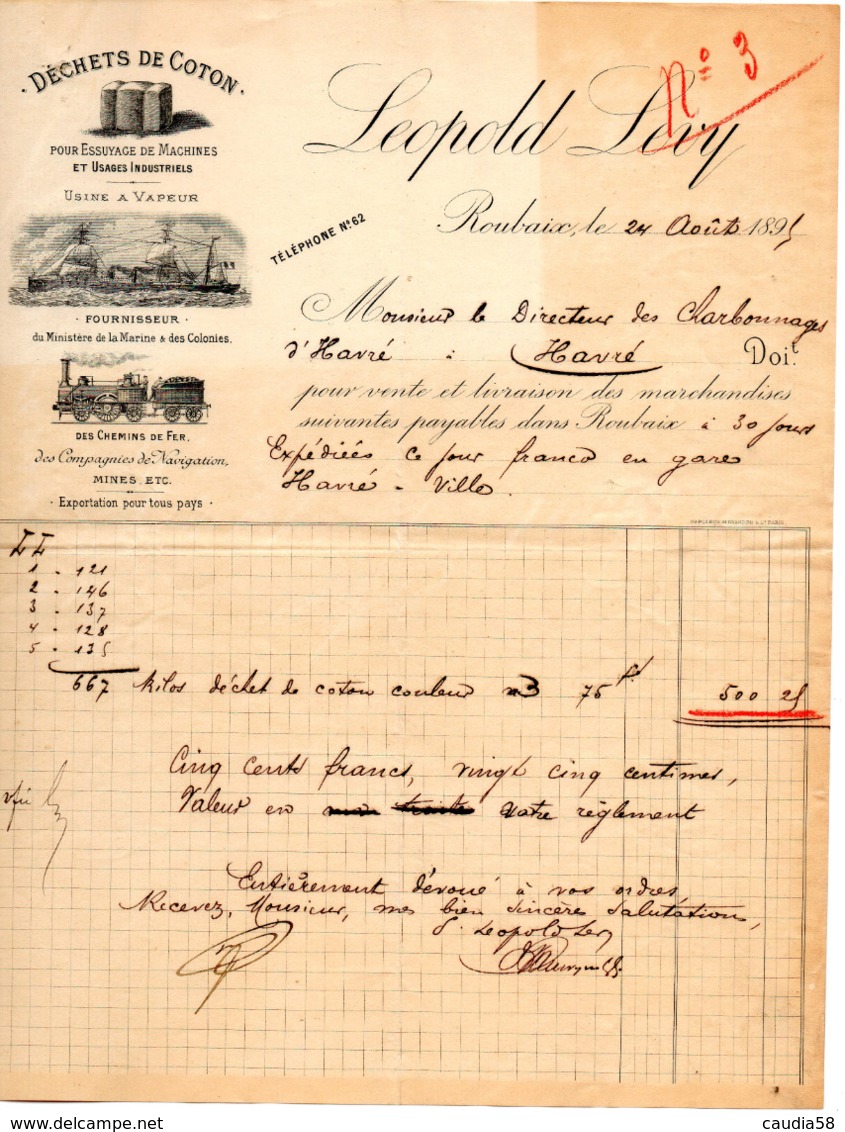 DÉCHETS DE COTON
POUR ESSUYAGE DE MACHINES
ET USAGES INDUSTRIELS
USINE A VAPEUR
FOURNISSEUR
du Ministère de la Marine & des Colonies.
DES CHEMINS DE FER.
des Compagnies de Navigation,
MINES, ETC.
Exportation pour tous pays
Nº 3
Leopold Levy
TÉLÉPHONE Nº 62
Roubaix, le 24 Août 1895
Monsieur le Directeur des Charbonnages
d'Havré à Havré Doit
pour vente et livraison des marchandises
suivantes payables dans Roubaix à 30 jours
Expédiées ce jour franco en gare
Havré - Ville.
1 - 121
2 - 146
3 - 137
4 - 128
5 - 135
667 Kilos déchet de coton couleur 3 75 500 25
Cinq cents francs, vingt cinq centimes,
Valeur en votre règlement
Entièrement dévoué à vos ordres,
Recevez, Monsieur, mes bien sincères salutations,
Leopold Levy
caudia58